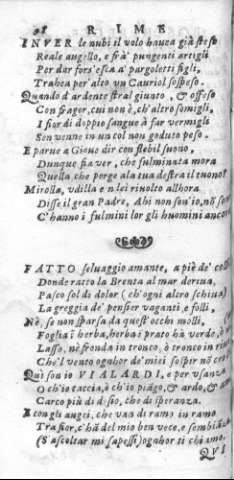 98 RIME
INVER le nubi il volo havea già steso
Reale augello, e frà pungenti artigli
Per dar fors'esca a' pargoletti figli,
Trahea per alto un Cauriol sospeso.
Quando d'ardente stral giunto, & offeso
Con fragor, cui non è, ch'altro somigli,
I fior di doppio sangue à far vermigli
Sen venne in un col non goduto peso.
E parue a Gioue dir con flebil suono,
Dunque fia ver, che fulminata mora
Quella che porge ala tua destra il tuono?
Mirolla, udilla e n lei rivolto allhora
Disse il gran Padre, Ahi non son'io, nò
C'hanno i fulmini lor gli huomini ancora
FATTO seluaggio amante, a piè de'
Donde ratto la Brenta al mar deriua,
Pasco sol di dolor (ch'ogni altro schiua)
La greggia de' pensier vaganti, e folli,
Nè, se non sparsa da quest'occhi molli,
Foglia i herba, herba i prato hà verde, ò
Lasso, nè fronda in tronco, ò tronco in
Che'l vento ognhor de' miei sospir nõ
Quì son io VIALARDI, e per usanza
O ch'io taccia, è ch'io piãgo, & ardo, &
Carco più di disio, che di speranza.
E con gli augei, che van di ramo in ramo
Trasfior, c'hà del mio ben vece, e sembianza
(S'ascoltar mi sapessi) ognhor ti chiamo.
QVI